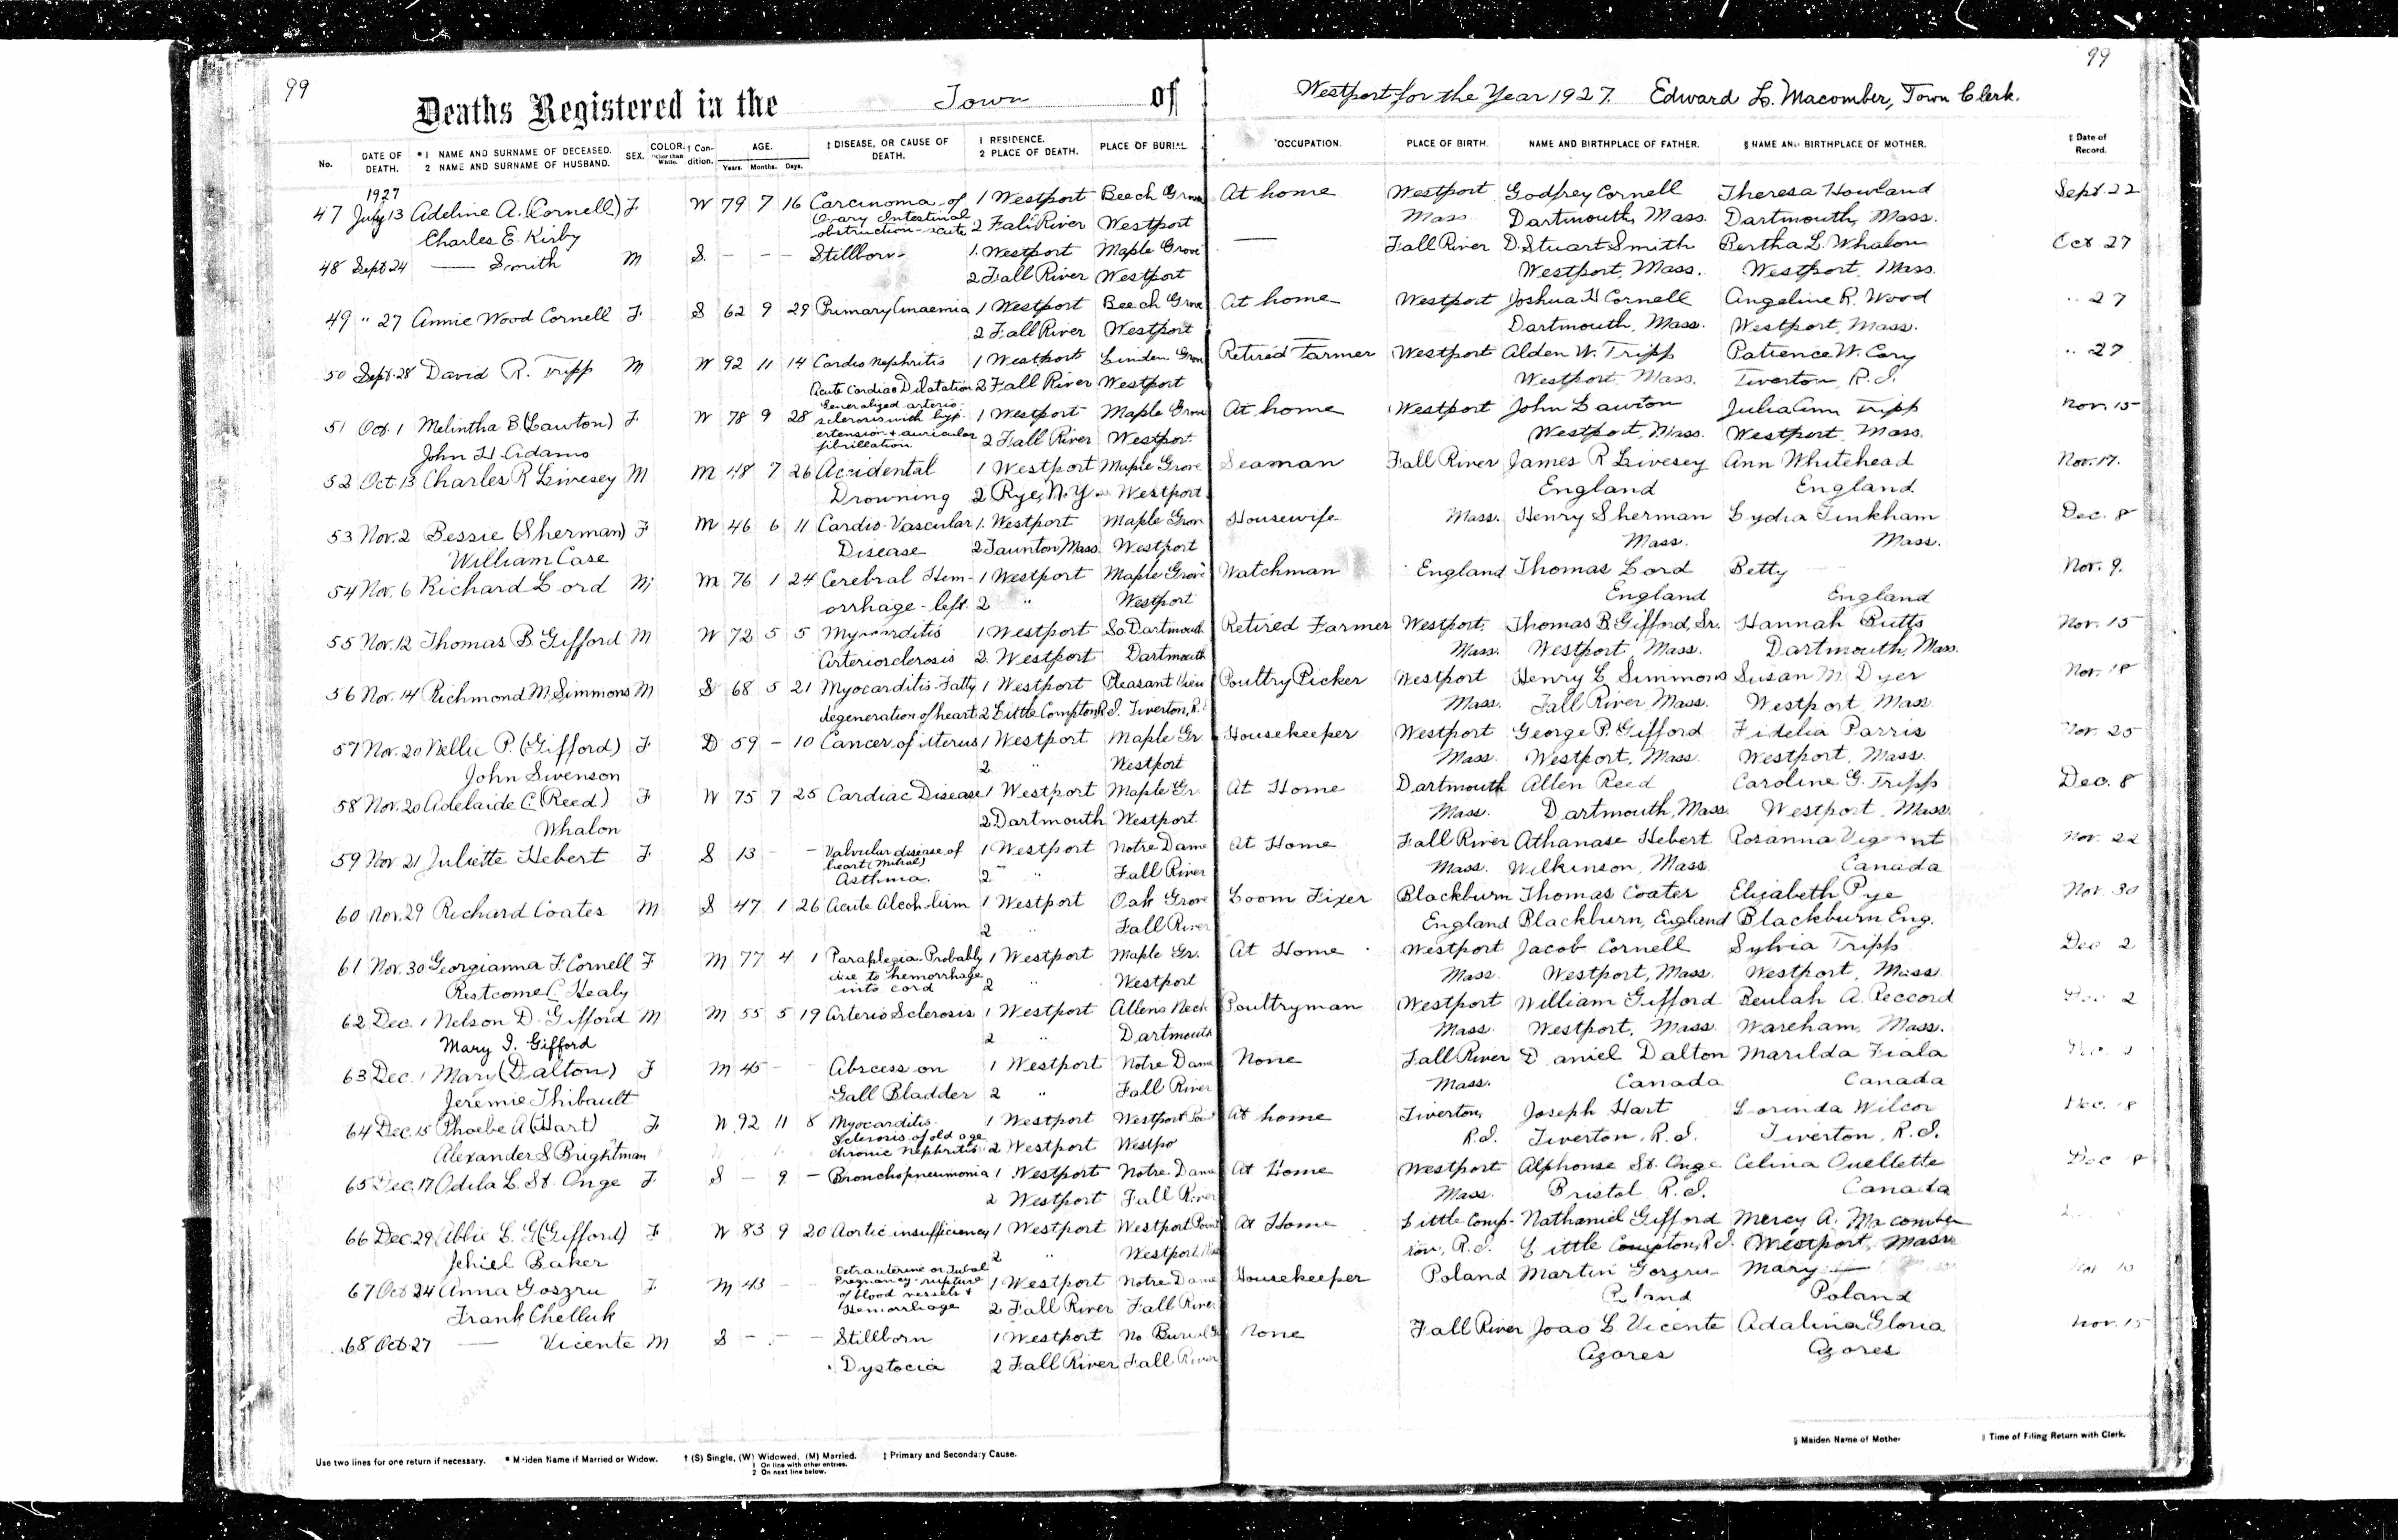 99
99
Deaths Registered in the Town of Westport for the Year 1927. Edward L. Macomber, Town Clerk.
No. DATE OF DEATH. *1 NAME AND SURNAME OF DECEASED. 2 NAME AND SURNAME OF HUSBAND. SEX. COLOR. Other than White. † Condition. AGE. Years. Months. Days. ‡ DISEASE, OR CAUSE OF DEATH. 1 RESIDENCE. 2 PLACE OF DEATH. PLACE OF BURIAL *OCCUPATION. PLACE OF BIRTH. NAME AND BIRTHPLACE OF FATHER. § NAME AND BIRTHPLACE OF MOTHER. ‖ Date of Record.
1927
47 July 13 Adeline A. (Cornell) F W 79 7 16 Carcinoma of 1 Westport Beech Grove At home Westport Godfrey Cornell Theresa Howland Sept. 22
Ovary Intestinal obstruction-acute 2 Fall River Westport Mass Dartmouth, Mass. Dartmouth, Mass.
Charles E. Kirby
48 Sept 24 — Smith M S. - - - Stillborn 1. Westport Maple Grove — Fall River D. Stuart Smith Bertha L. Whalon Oct 27
2 Fall River Westport Westport, Mass. Westport, Mass.
49 " 27 Annie Wood Cornell F S 62 9 29 Primary Anaemia 1 Westport Beech Grove At home Westport Joshua H Cornell Angeline R. Wood " 27
2 Fall River Westport Dartmouth, Mass. Westport, Mass.
50 Sept. 28 David R. Tripp M W 92 11 14 Cardio Nephritis 1 Westport Linden Grove Retired Farmer Westport Alden W. Tripp Patience W. Cory " 27
Acute Cardiac Dilatation 2 Fall River Westport Westport, Mass. Tiverton, R.I.
51 Oct. 1 Melintha B. (Lawton) F W 78 9 28 Generalized arterio-sclerosis with hyp- 1 Westport Maple Grove At home Westport John Lawton Julia Ann Tripp Nov. 15
extension + auricular fibrillation 2 Fall River Westport Westport, Mass. Westport, Mass.
John H Adams
52 Oct. 13 Charles R Livesey M M 48 7 26 Accidental 1 Westport Maple Grove Seaman Fall River James R Livesey Ann Whitehead Nov. 17.
Drowning 2 Rye, N.Y. Westport England England
53 Nov. 2 Bessie (Sherman) F M 46 6 11 Cardio-Vascular 1. Westport Maple Grove Housewife Mass. Henry Sherman Lydia Tinkham Dec. 8
Disease 2 Taunton Mass. Westport Mass. Mass.
William Case
54 Nov. 6 Richard Lord M M 76 1 24 Cerebral Hem- 1 Westport Maple Grove Watchman England Thomas Lord Betty Nov. 9.
orrhage-left 2 " Westport England England
55 Nov. 12 Thomas B. Gifford M W 72 5 5 Myocarditis 1 Westport So. Dartmouth Retired Farmer Westport, Thomas B. Gifford, Sr. Hannah Butts Nov. 15
Arteriosclerosis 2. Westport Dartmouth Mass. Westport, Mass. Dartmouth, Mass.
56 Nov. 14 Richmond M. Simmons M S 68 5 21 Myocarditis-Fatty 1 Westport Pleasant View Poultry Picker Westport Henry L Simmons Susan M. Dyer Nov. 18
degeneration of heart 2 Little Compton R.I. Tiverton, R.I. Mass. Fall River, Mass. Westport, Mass.
57 Nov. 20 Nellie P. (Gifford) F D 59 - 10 Cancer of Uterus 1 Westport Maple Gr Housekeeper Westport George P. Gifford Fidelia Parris Nov. 25
2 " Westport Mass. Westport, Mass. Westport, Mass.
John Swenson
58 Nov. 20 Adelaide C. (Reed) F W 75 7 25 Cardiac Disease 1 Westport Maple Gr. At Home Dartmouth Allen Reed Caroline G. Tripp Dec. 8
2 Dartmouth Westport Mass. Dartmouth, Mass. Westport, Mass.
Whalon
59 Nov 21 Juliette Hebert F S 13 - - Valvular disease of heart (Mitral) 1 Westport Notre Dame At Home Fall River Athanase Hebert Rosanna Nov. 22
Asthma. 2 " Fall River Mass. Wilkinson, Mass Canada
60 Nov. 29 Richard Coates M S 47 1 26 Acute Alcoholism 1 Westport Oak Grove Loom Fixer Blackburn Thomas Coates Elizabeth Pye Nov 30
2 " Fall River England Blackburn, England Blackburn Eng.
61 Nov. 30 Georgianna F. Cornell F M 77 4 1 Paraplegia-Probably 1 Westport Maple Gr. At Home Westport Jacob Cornell Sylvia Tripp Dec 2
due to hemorrhage into cord 2 " Westport Mass. Westport, Mass. Westport, Mass
Restcome C. Healy
62 Dec. 1 Nelson D. Gifford M M 55 5 19 Arterio Sclerosis 1 Westport Allens Neck Poultryman Westport William Gifford Beulah A. Reccord Dec 2
2 " Dartmouth Mass. Westport, Mass. Wareham, Mass.
Mary I. Gifford
63 Dec. 1 Mary (Dalton) F M 45 - - Abscess on 1 Westport Notre Dame None Fall River Daniel Dalton Marilda Fiala
Gall Bladder 2 " Fall River Mass. Canada Canada
Jeremie Thibault
64 Dec. 15 Phoebe A (Hart) F W. 92 11 8 Myocarditis 1 Westport Westport At home Tiverton, Joseph Hart Lorinda Wilcox Dec. 18
Sclerosis of old age Chronic Nephritis 2 Westport Westpo R.I. Tiverton, R.I. Tiverton, R.I.
Alexander S Brightman
65 Dec. 17 Odila L. St. Onge F S - 9 - Bronchopneumonia 1 Westport Notre Dame At Home Westport Alphonse St. Onge Celina Ouellette Dec
2 Westport Fall River Mass. Bristol R.I. Canada
66 Dec. 29 Abbie L. G. (Gifford) F W 83 9 20 Aortic insufficiency 1 Westport Westport Point At Home Little Comp- Nathaniel Gifford Mercy A. Macomber
2 " Westport, ton, R.I. Little Compton, R.I. Westport, Mass
Jehiel Baker
67 Oct 24 Anna Goszru F M 43 - - Extrauterine or Tubal Pregnancy-rupture 1 Westport Notre Dame Housekeeper Poland Martin Goszru Mary —
of blood vessels + Hemorrhage 2 Fall River Fall River Poland Poland
Frank Chelluk
68 Oct. 27 — Vicente M S - - - Stillborn 1 Westport No Burial None Fall River Joao L Vicente Adalina Gloria Nov. 15
Dystocia 2 Fall River Fall River Azores Azores
Use two lines for one return if necessary. * Maiden Name if Married or Widow. † (S) Single, (W) Widowed, (M) Married. ‡ Primary and Secondary Cause. § Maiden Name of Mother ‖ Time of Filing Return with Clerk.
1 On line with other entries.
2 On next line below.